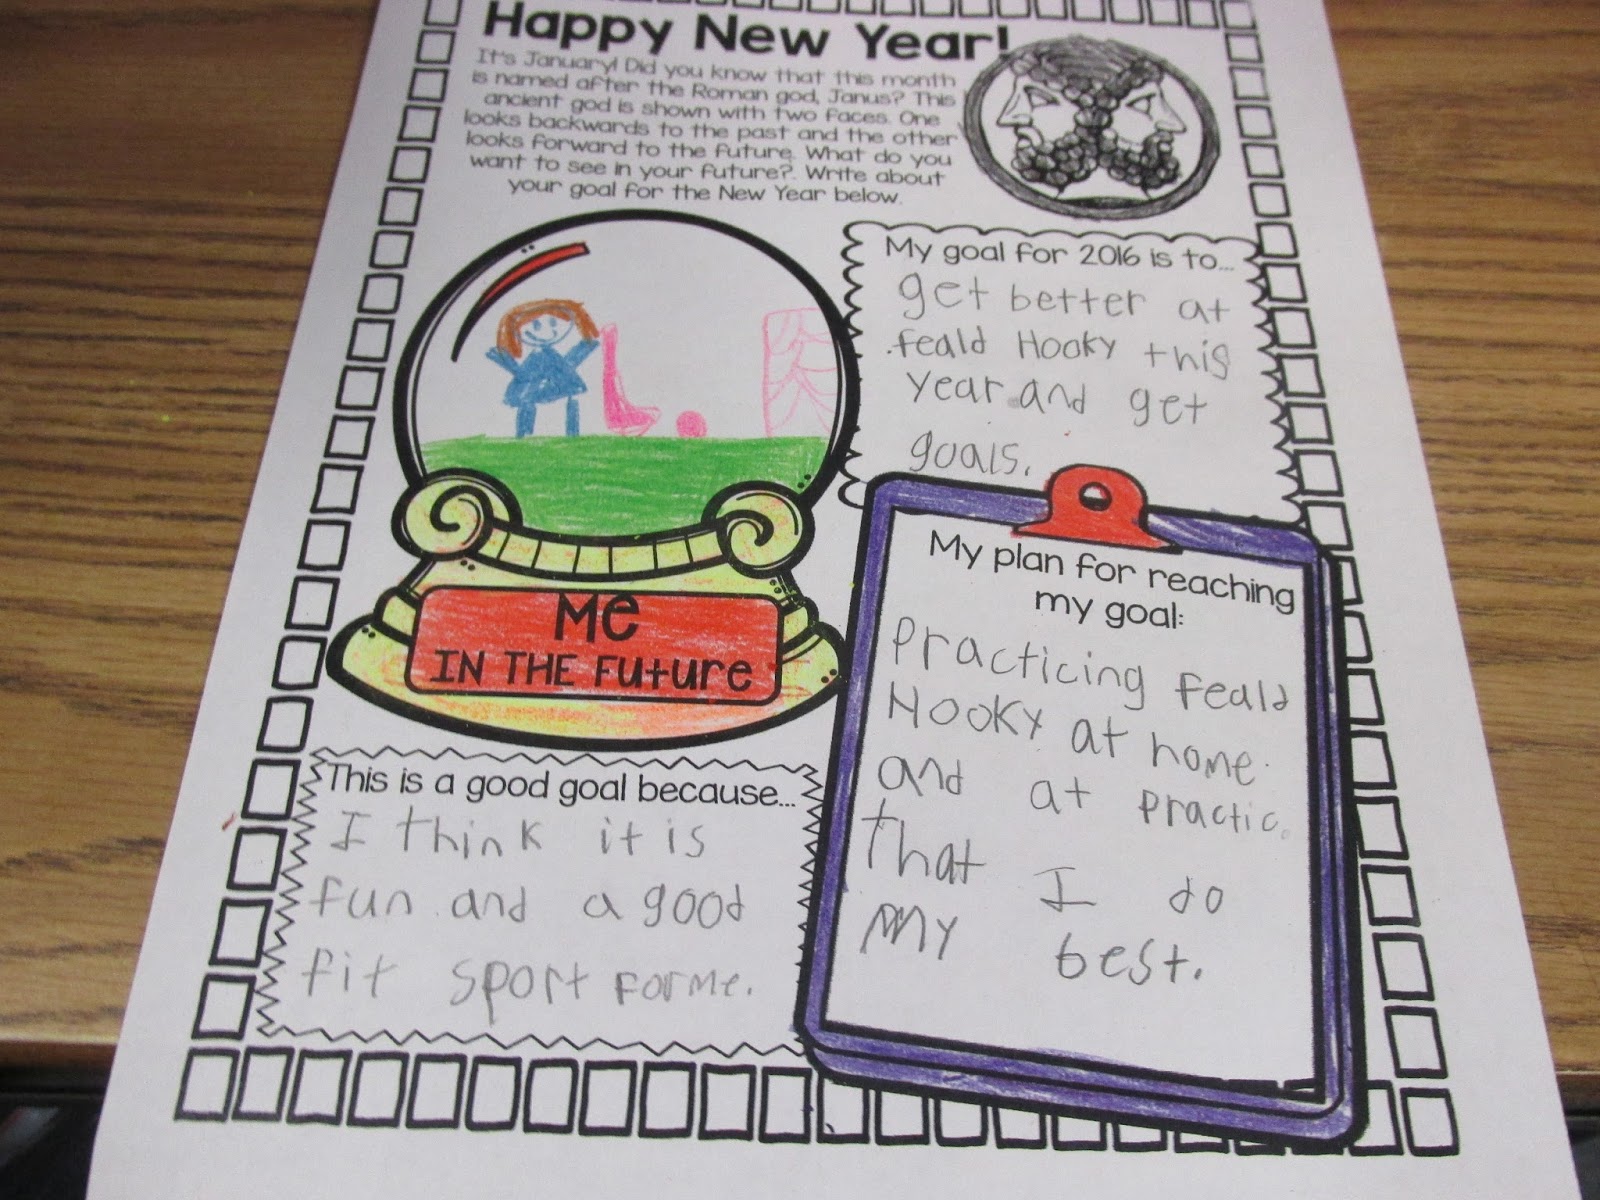 Happy New Year!
It's January! Did you know that this month
is named after the Roman god, Janus? This
ancient god is shown with two faces. One
looks backwards to the past and the other
looks forward to the future. What do you
want to see in your future?. Write about
your goal for the New Year below.
My goal for 2016 is to...
get better at
feald Hooky this
year and get
goals.
Me
IN THE FuTure
My plan for reaching
my goal:
Practicing feald
Hooky at home
and at practic.
That I do
My best.
This is a good goal because...
I think it is
fun and a good
fit sport for me.